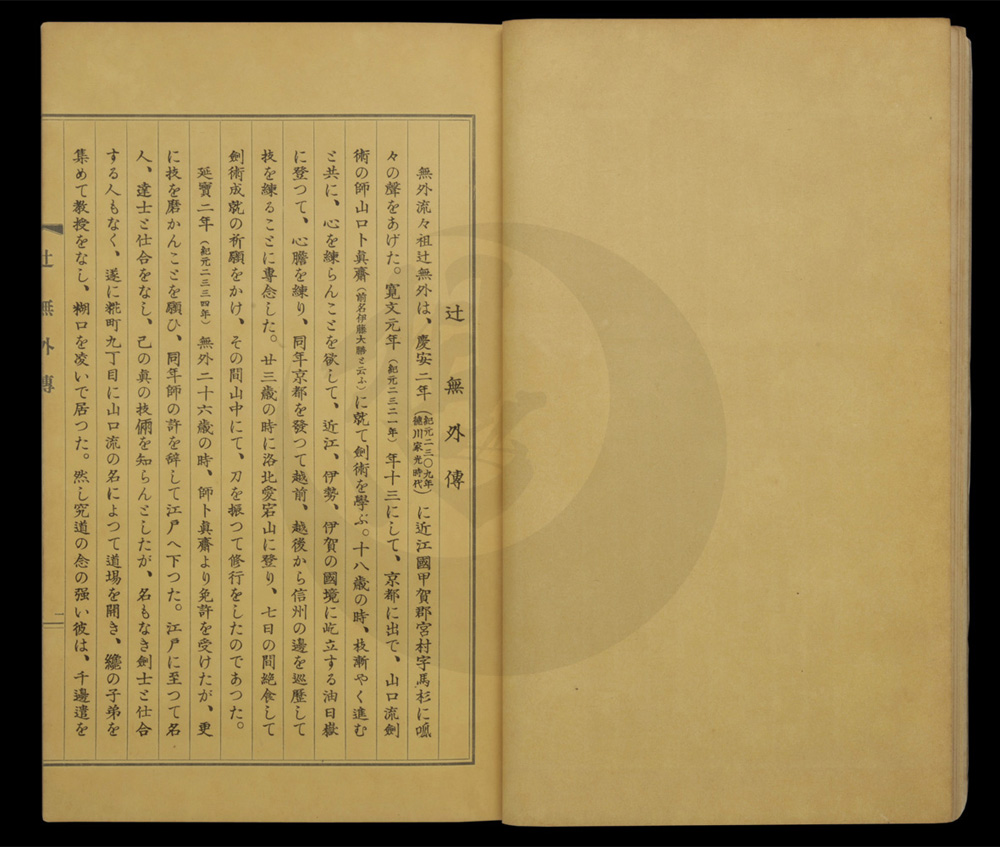 辻無外傳
無外流々祖辻無外は、慶安二年（紀元二三〇九年德川家光時代）に近江國甲賀郡宮村字馬杉に呱
々の聲をあげた。寛文元年（紀元二三二一年）年十三にして、京都に出で、山口流劍
術の師山口卜眞齋（前名伊藤大勝と云ふ）に就て劍術を學ぶ。十八歳の時、技漸やく進む
と共に、心を練らんことを欲して、近江、伊勢、伊賀の國境に屹立する油日嶽
に登つて、心膽を練り、同年京都を發つて越前、越後から信州の邊を巡歷して
技を練ることに專念した。廿三歳の時に洛北愛宕山に登り、七日の間絶食して
劍術成就の祈願をかけ、その間山中にて、刀を振つて修行をしたのであつた。
延寶二年（紀元二三三四年）無外二十六歳の時、師卜眞齋より免許を受けたが、更
に技を磨かんことを願ひ、同年師の許を辞して江戸へ下つた。江戸に至つて名
人、達士と仕合をなし、己の眞の技倆を知らんとしたが、名もなき劍士と仕合
する人もなく、遂に糀町九丁目に山口流の名によつて道場を開き、纔の子弟を
集めて教授をなし、糊口を凌いで居つた。然し究道の念の强い彼は、千邊遣を
辻無外傳
一